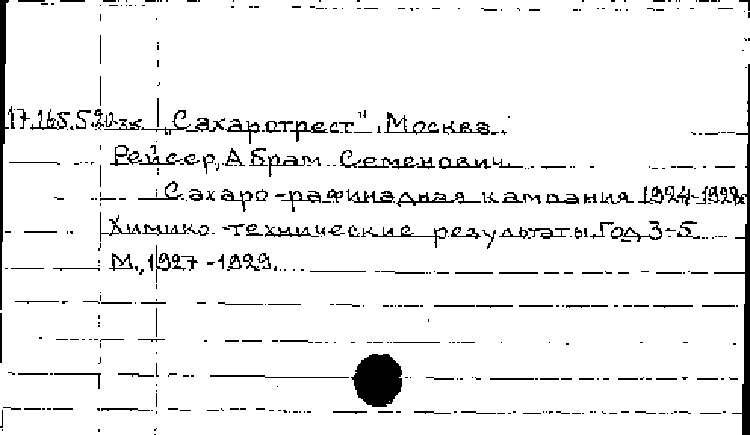 17.165.520 "Сахаротрест", Москва.
Рейсер, Абрам Семенович.
Сахаро-рафинадная кампания 1924-1928г
Химико-технические результаты. Год 3-5
М., 1927-1929.